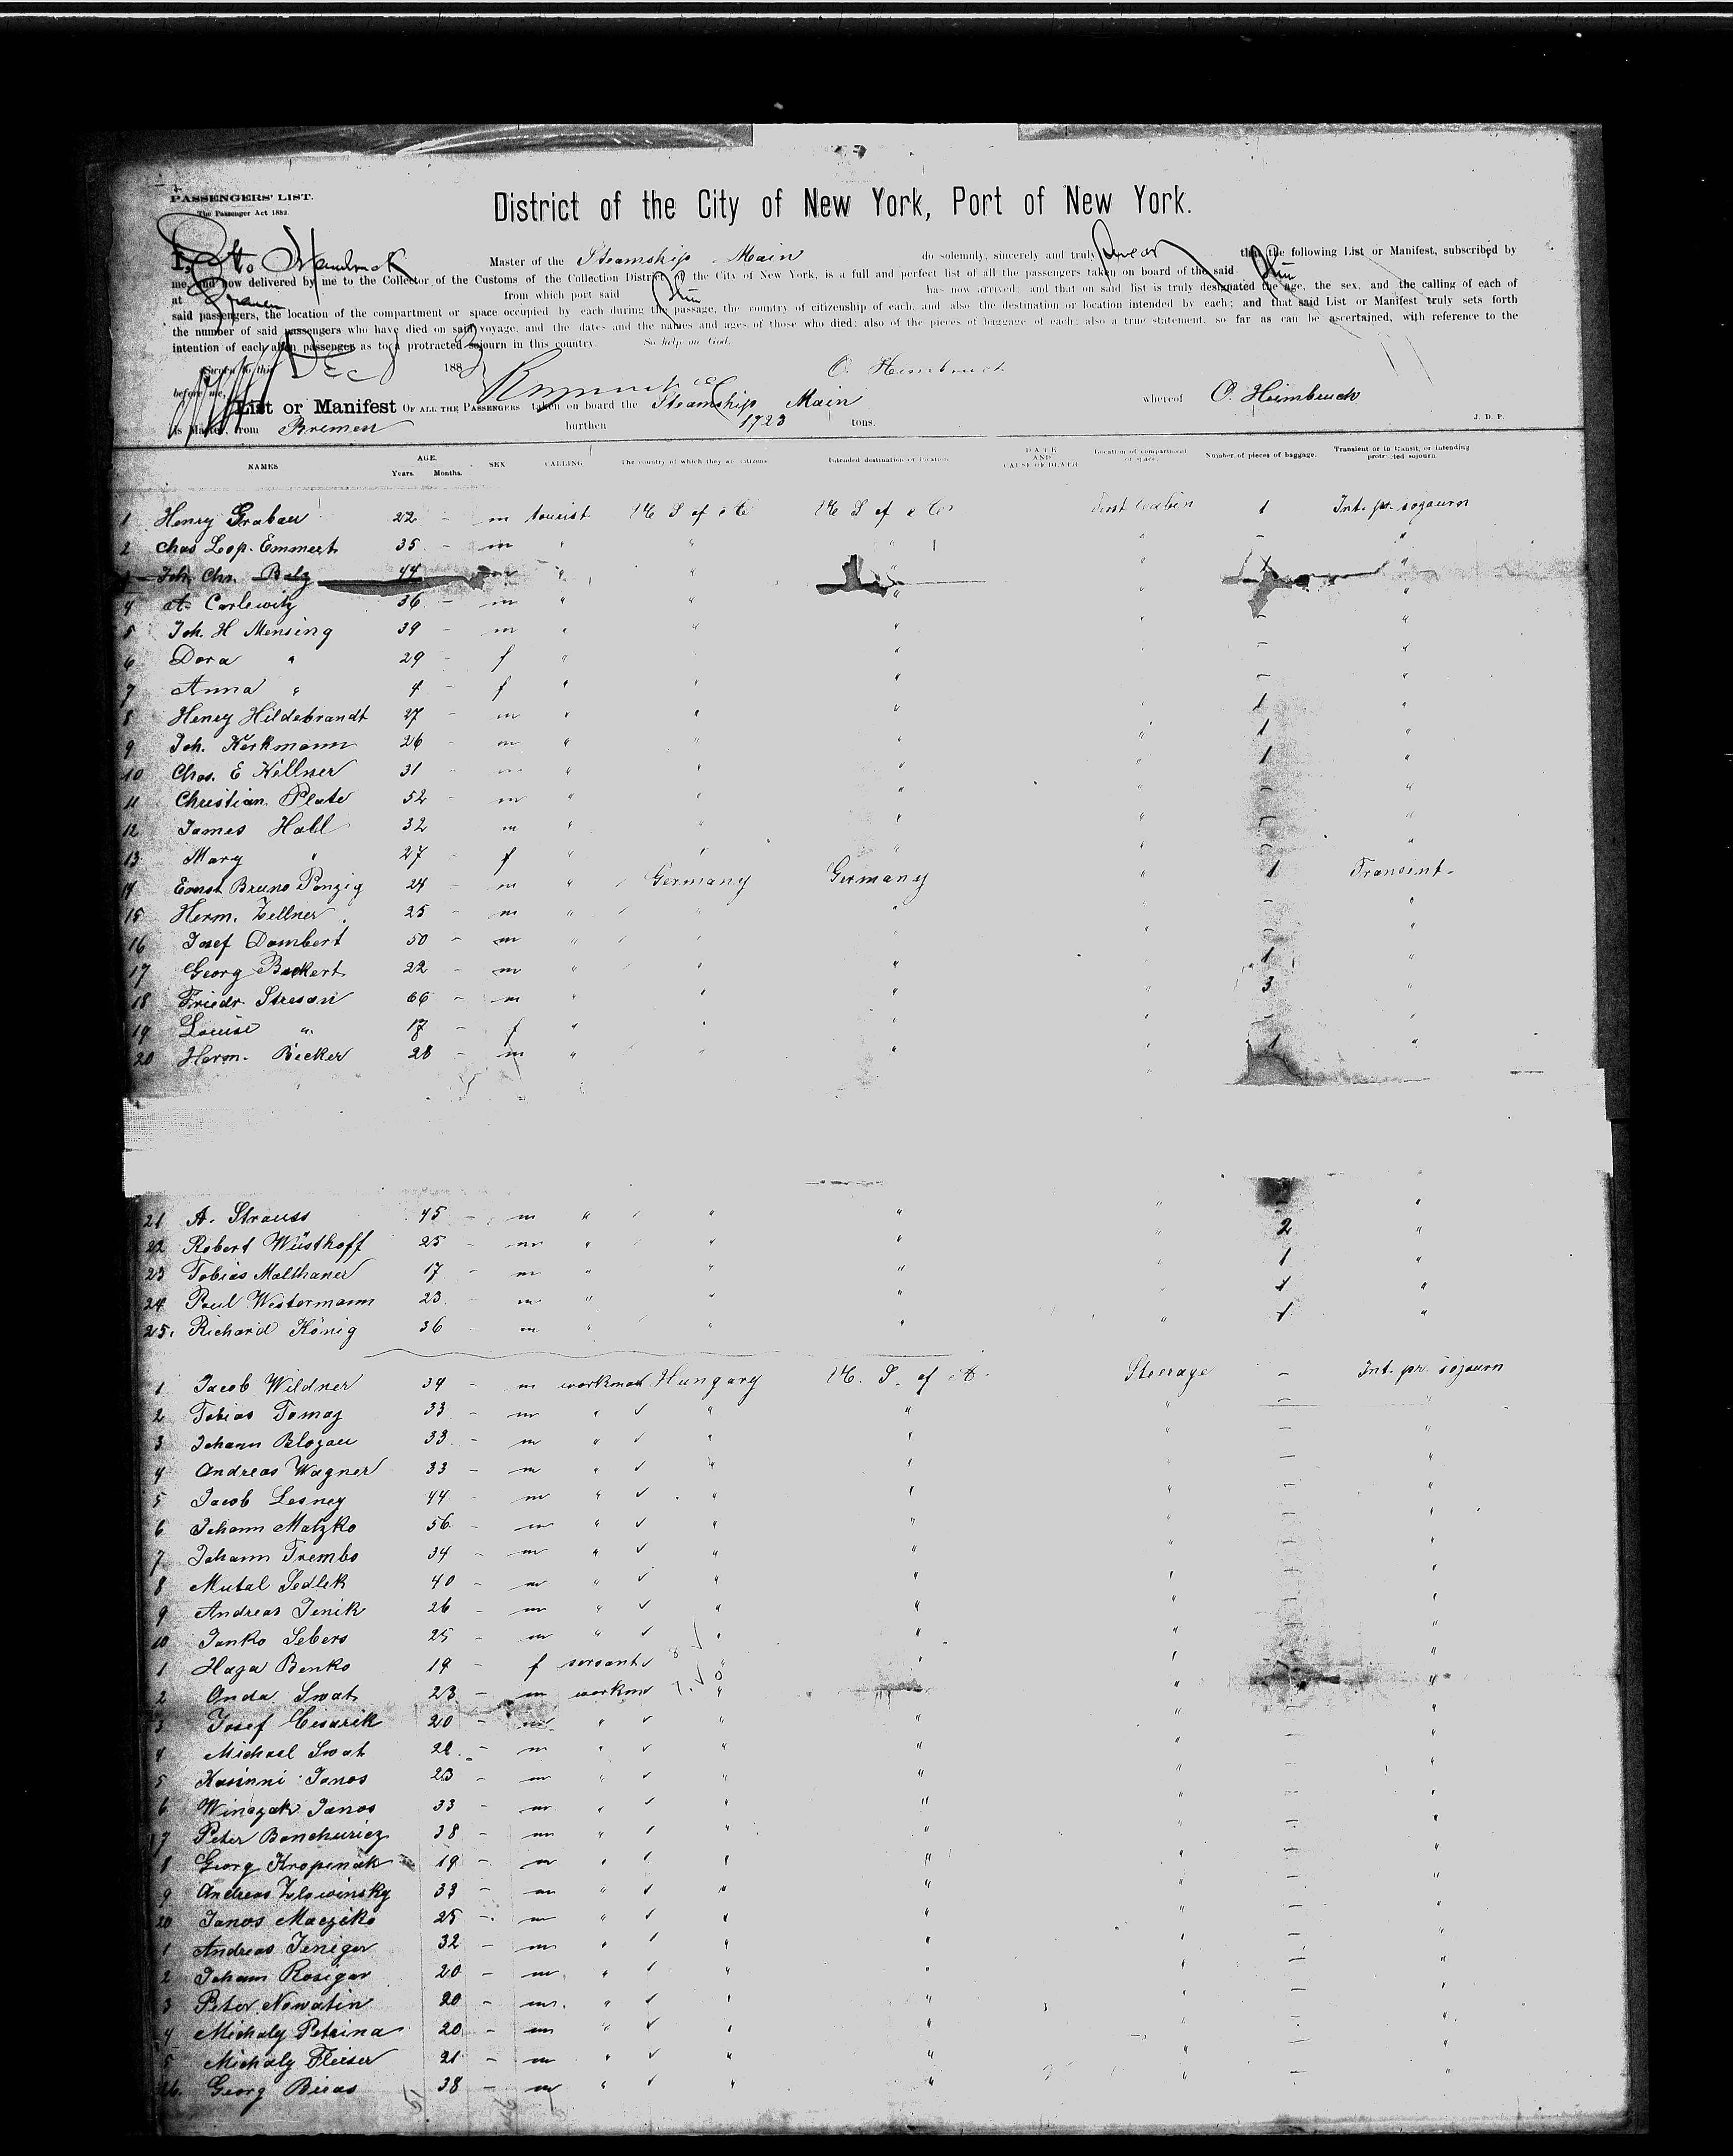 PASSENGERS' LIST.
The Passenger Act 1882.
District of the City of New York, Port of New York.
I, Otto Master of the Steamship Main do solemnly, sincerely and truly swear that the following List or Manifest, subscribed by
me, and now delivered by me to the Collector of the Customs of the Collection District of the City of New York, is a full and perfect list of all the passengers taken on board of the said
at Bremen from which port said has now arrived; and that on said list is truly designated the age, the sex, and the calling of each of
said passengers, the location of the compartment or space occupied by each during the passage, the country of citizenship of each, and also the destination or location intended by each; and that said List or Manifest truly sets forth
the number of said passengers who have died on said voyage, and the dates and the names and ages of those who died; also of the pieces of baggage of each; also a true statement, so far as can be ascertained, with reference to the
intention of each alien passenger as to a protracted sojourn in this country. So help me God.
Sworn to this Dec 1883 O. Heimbruch
before me,
List or Manifest OF ALL THE PASSENGERS taken on board the Steamship Main whereof O. Heimbruch
is Master, from Bremen burthen 1723 tons. J. D. P.
NAMES AGE. Years. Months. SEX CALLING The country of which they are citizens Intended destination or location DATE AND CAUSE OF DEATH Location of compartment or space. Number of pieces of baggage. Transient or in transit, or intending protracted sojourn.
1 Henry Grabau 22 - m tourist U S of A U S of A First Cabin 1 Int. pr. sojourn
2 Chas Leop. Emmert 35 - m " " " " - "
3 Joh. Chr. Balz 44 m " " " " "
4 A. Carlewitz 36 - m " " " " - "
5 Joh. H Mensing 39 - m " " " " - "
6 Dora " 29 - f " " " " - "
7 Anna " 4 - f " " " " - "
8 Henry Hildebrandt 27 - m " " " " 1 "
9 Joh. Kerkmann 26 - m " " " " 1 "
10 Chas. E Kellner 31 - m " " " " 1 "
11 Christian Plate 52 - m " " " " - "
12 James Hall 32 m " " " " - "
13 Mary " 27 - f " " " " - "
14 Ernst Bruno Panzig 24 - m " Germany Germany " 1 Transient
15 Herm. Zellner 25 - m " " " " - "
16 Josef Dombert 50 - m " " " " - "
17 Georg Beckert 22 - m " " " " 1 "
18 Friedr. Stresau 66 - m " " " " 3 "
19 Louise " 17 - f " " " " - "
20 Herm. Becker 28 - m " " " " 1 "
21 A. Strauss 45 - m " " " " - "
22 Robert Wüsthoff 25 - m " " " " 2 "
23 Tobias Malthaner 17 - m " " " " 1 "
24 Paul Westermann 23 - m " " " " 1 "
25. Richard König 36 - m " " " " 1 "
1 Jacob Wildner 34 - m workman Hungary U. S. of A. Steerage - Int. pr. sojourn
2 Tobias Tomaz 33 - m " " " " - "
3 Johann Blozau 33 - m " " " " - "
4 Andreas Wagner 33 - m " " " " - "
5 Jacob Lesney 44 - m " " " " - "
6 Johann Matzko 56 - m " " " " - "
7 Johann Trembo 34 - m " " " " - "
8 Mutal Sedlek 40 - m " " " " - "
9 Andreas Jenik 26 - m " " " " - "
10 Janko Sebers 25 - m " " " " - "
1 Haza Benko 19 - f servant " " " - "
2 Onda Swat 23 - m workm " " " "
3 Josef Cisarik 20 - m " " " " - "
4 Michael Swat 22 - m " " " " - "
5 Kasinni Janos 23 - m " " " " - "
6 Winczak Janos 33 - m " " " " - "
17 Peter Banchuricz 38 - m " " " " - "
8 Georg Kropenak 19 - m " " " " - "
9 Andreas Zlowinsky 33 - m " " " " - "
20 Janos Maczeko 25 - m " " " " - "
1 Andreas Teniger 32 - m " " " " - "
2 Johann Rosigar 20 - m " " " " - "
3 Peter Nowatin 20 - m " " " " - "
4 Michaly Petrina 20 - m " " " " - "
5 Michaly Fleiser 21 - m " " " " - "
26. Georg Bicas 38 - m " " " " - "